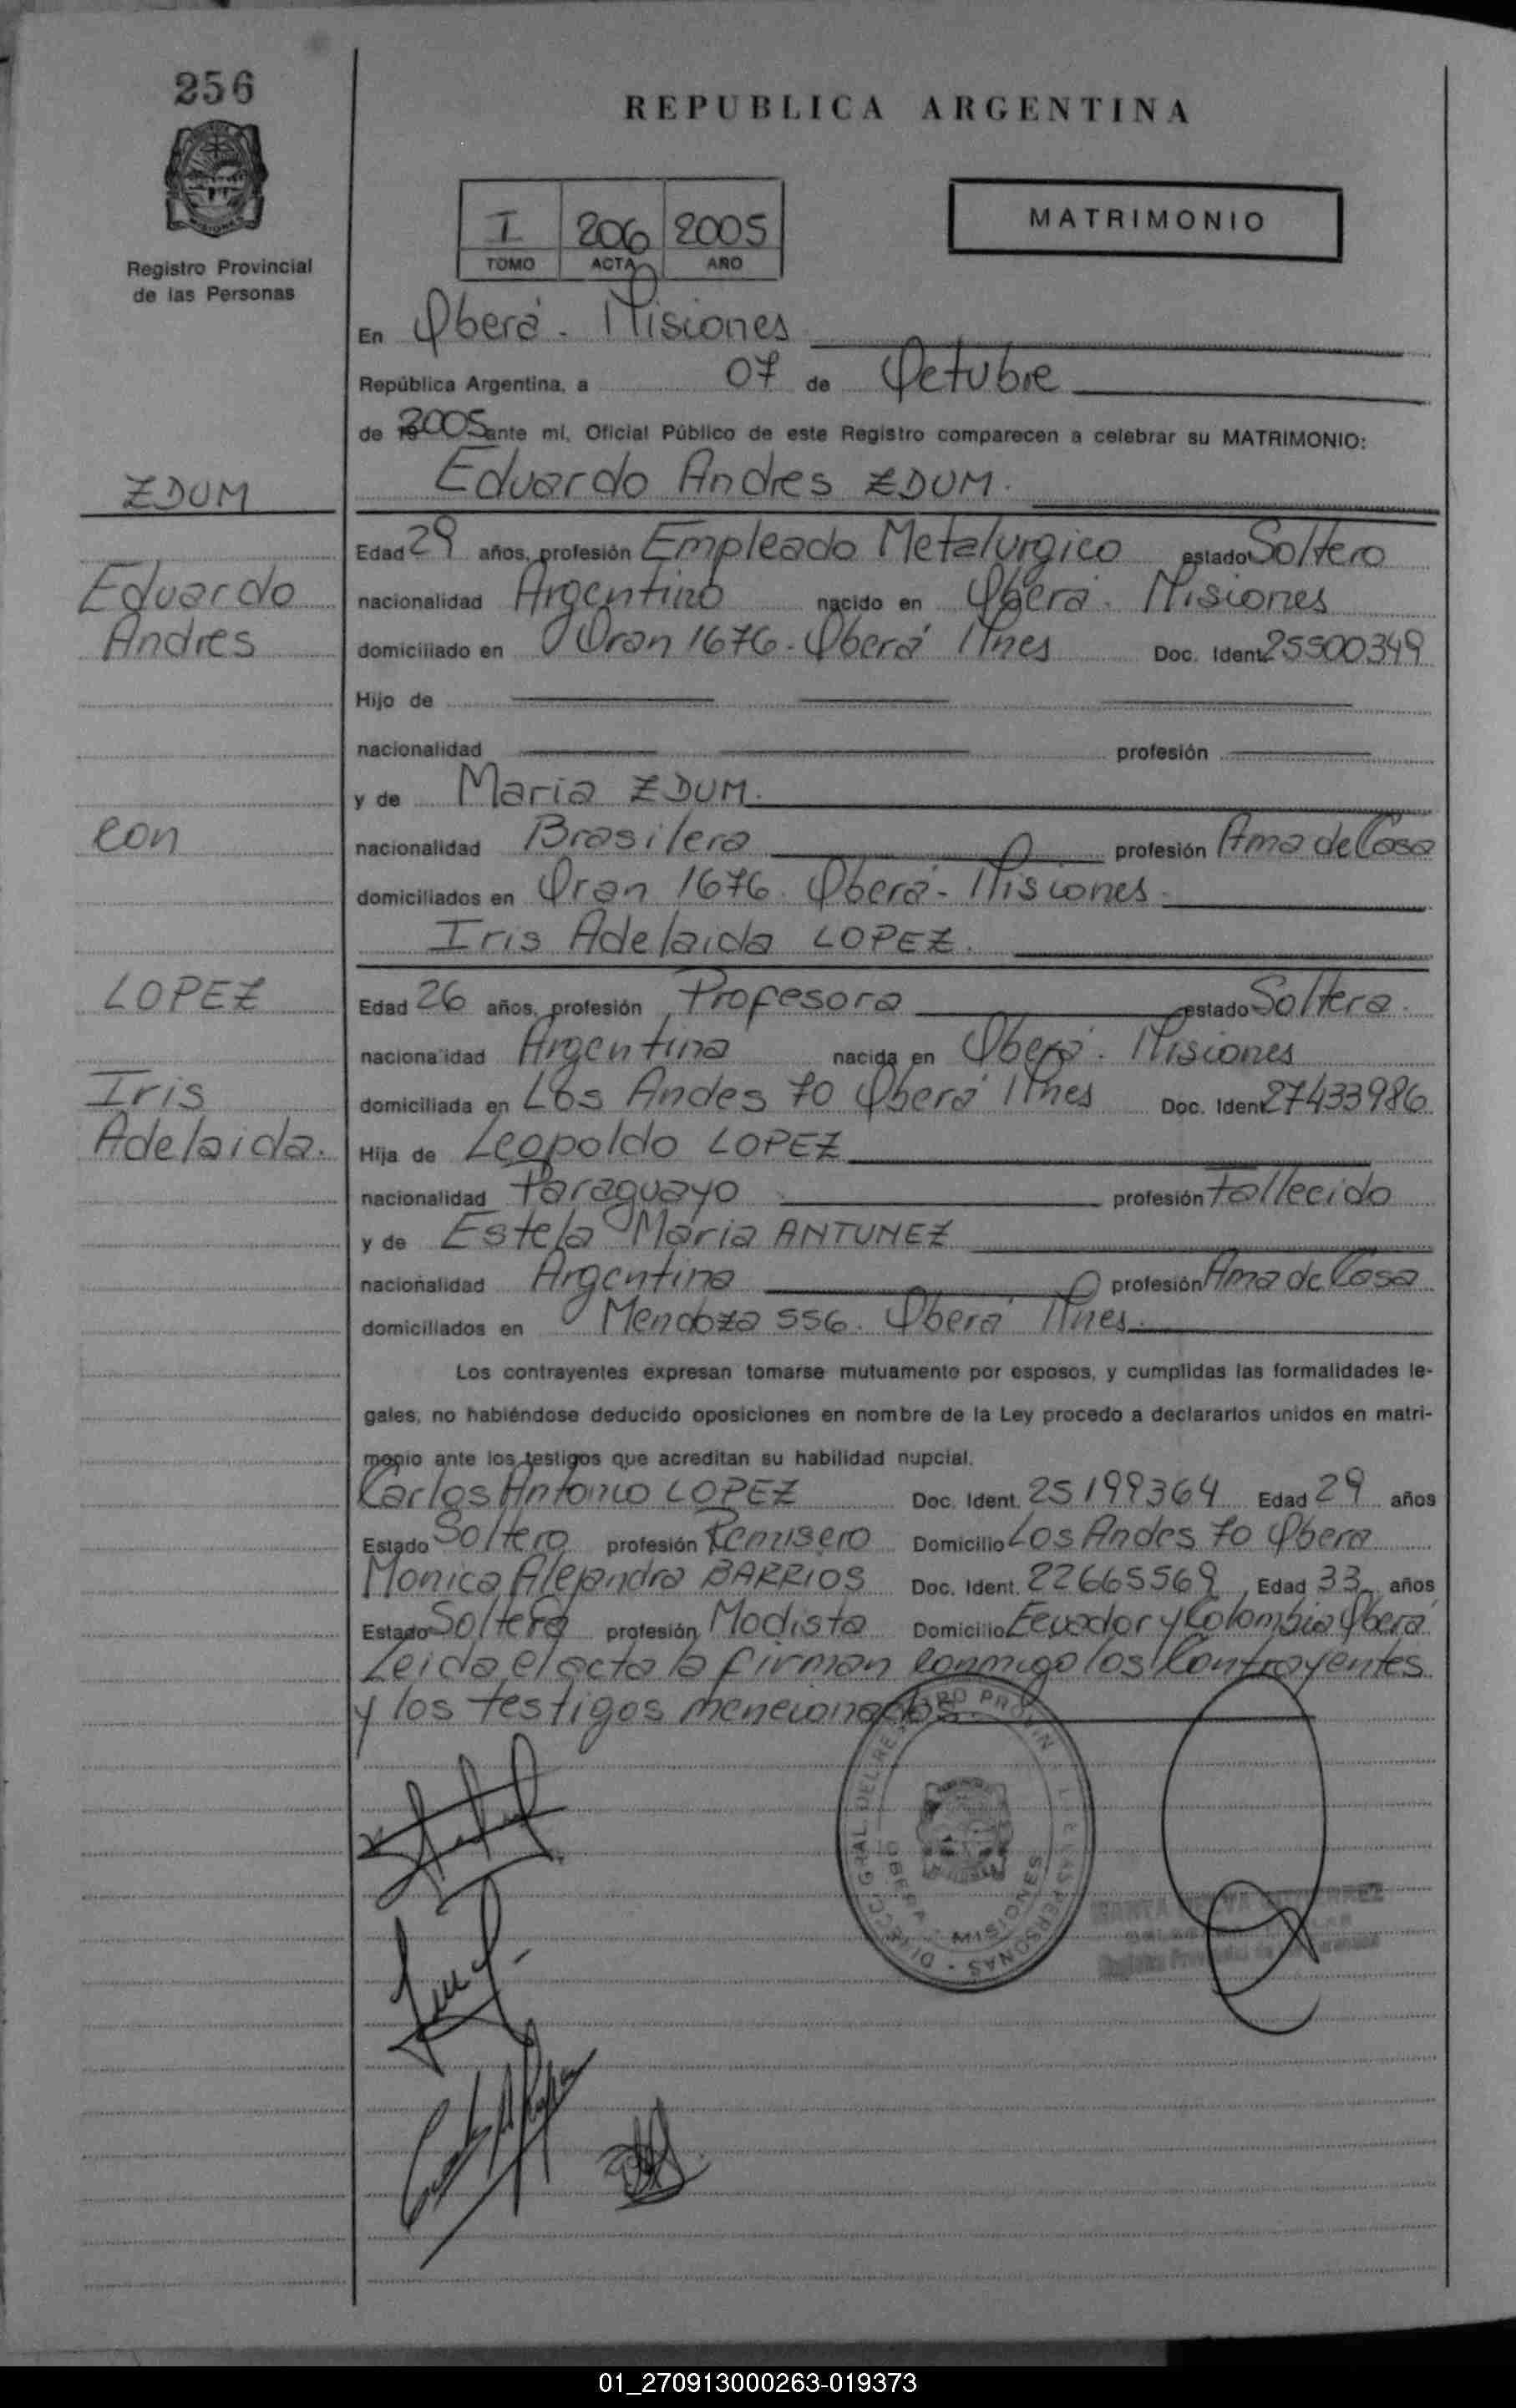 256
REPUBLICA ARGENTINA
Registro Provincial
de las Personas
I 206 2005
TOMO ACTA AÑO
MATRIMONIO
En Oberá - Misiones
República Argentina, a 07 de Octubre
de 2005 ante mí, Oficial Público de este Registro comparecen a celebrar su MATRIMONIO:
ZDUM
Eduardo Andres ZDUM.
Edad 29 años, profesión Empleado Metalurgico estado Soltero
Eduardo
nacionalidad Argentino nacido en Oberá - Misiones
Andres
domiciliado en Oran 1676 - Oberá Mnes Doc. Ident. 25500349
Hijo de
nacionalidad profesión
y de Maria ZDUM.
con
nacionalidad Brasilera profesión Ama de Casa
domiciliados en Oran 1676 - Oberá - Misiones
Iris Adelaida LOPEZ.
LOPEZ
Edad 26 años, profesión Profesora estado Soltera.
nacionalidad Argentina nacida en Oberá - Misiones
Iris
domiciliada en Los Andes 70 Oberá Mnes Doc. Ident. 27433986
Adelaida.
Hija de Leopoldo LOPEZ
nacionalidad Paraguayo profesión Fallecido
y de Estela Maria ANTUNEZ
nacionalidad Argentina profesión Ama de Casa
domiciliados en Mendoza 556 - Oberá Mnes.
Los contrayentes expresan tomarse mutuamente por esposos, y cumplidas las formalidades le-
gales, no habiéndose deducido oposiciones en nombre de la Ley procedo a declararlos unidos en matri-
monio ante los testigos que acreditan su habilidad nupcial.
Carlos Antonio LOPEZ Doc. Ident. 25199364 Edad 29 años
Estado Soltero profesión Remisero Domicilio Los Andes 70 Oberá
Monica Alejandra BARRIOS Doc. Ident. 22665569 Edad 33 años
Estado Soltera profesión Modista Domicilio Ecuador y Colombia Oberá
Leida el acta la firman conmigo los Contrayentes
y los testigos mencionados.
OBERA - MISIONES
01_270913000263-019373